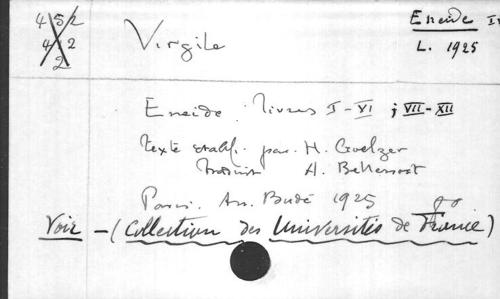 4 5/2
4 2
2
Virgile
Eneide
L. 1925
Eneide. livres I-VI ; VII-XII
texte établi par H. Goelzer
traduit A. Bellessort
Paris. Ass. Budé 1925
Voir - (Collection des Universités de France)